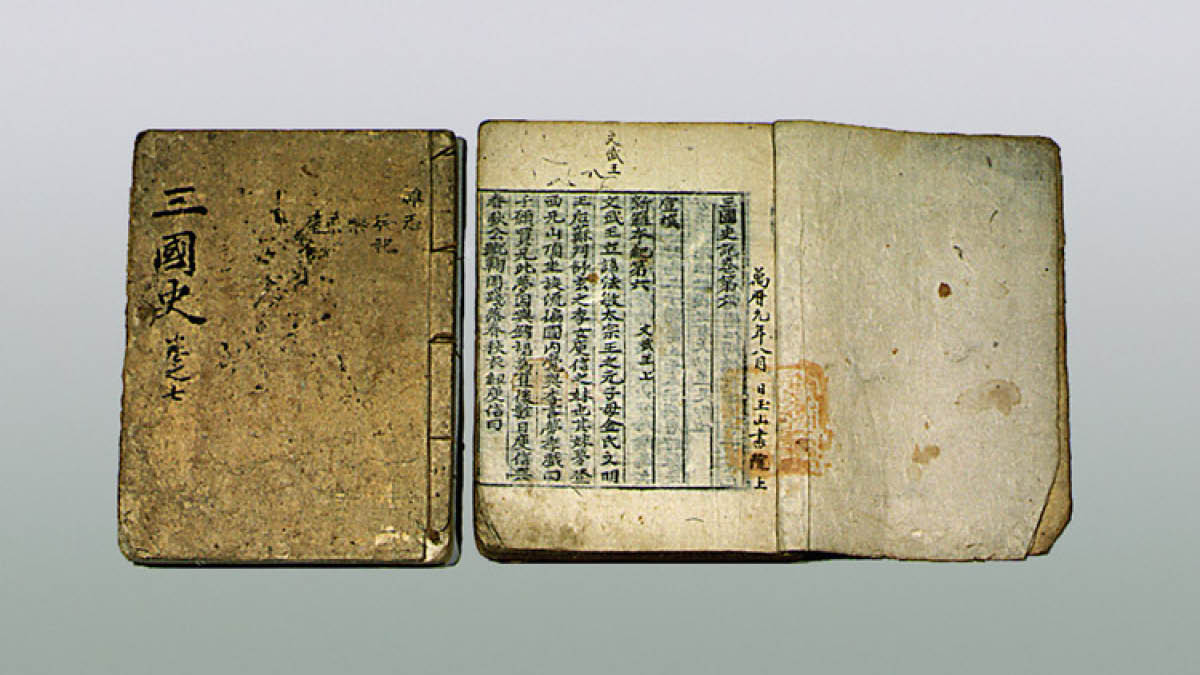 三國史 卷之七
文武王
萬曆九年八月 日玉山書院上
三國史記卷第六
宣撰
新羅本紀第六 文武王上
文武王立諱法敏太宗王之元子母金氏文明
王后蘇判舒玄之季女庾信之妹也其姊夢登
西兄山頂坐旋流徧國內覺與季言夢季戱曰
予願買兄此夢因與錦裙爲直後數日庾信與
春秋公蹴鞠因踐落春秋衣紐庾信曰